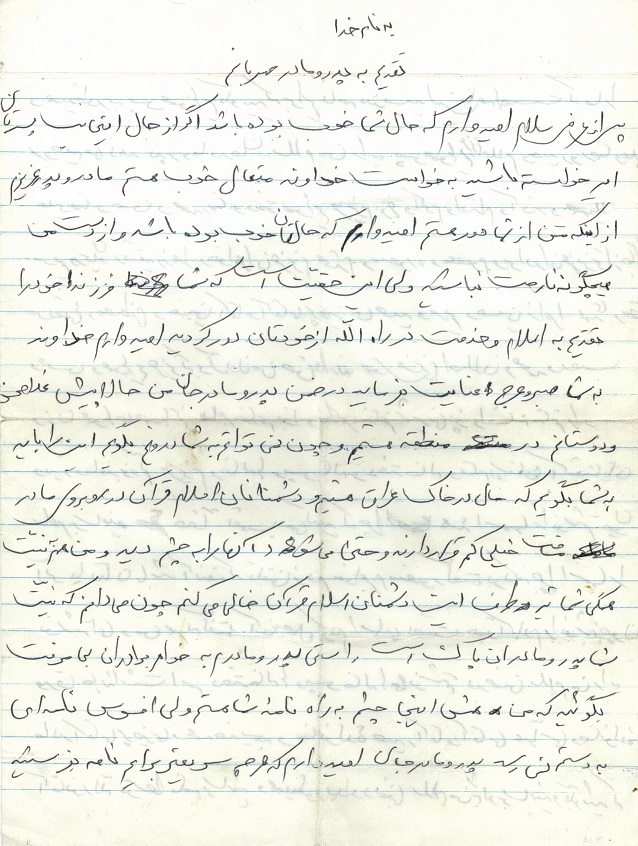 به نام خدا
تقدیم به پدر و مادر مهربانم
پس از عرض سلام امیدوارم که حال شما خوب بوده باشد اگر از حال اینجانب پسرتان
امیر خواسته باشید به خواست خداوند متعال خوب هستم مادر و پدر عزیزم
از اینکه من از شما دور هستم امیدوارم که حالتان خوب بوده باشد و از دست من
هیچگونه ناراحت نباشید ولی این حقیقت است که شما فرزند خود را
تقدیم به اسلام و خدمت در راه الله از خودتان دور کردید امیدوارم خداوند
به شما صبر و عنایت بفرماید در ضمن پدر و مادر جان من حالا پیش غلامحسن
و دوستانم در منطقه هستم و چون نمی توانم به شما دروغ بگویم این را باید
به شما بگویم که حال در خاک عراق هستیم و دشمنان اسلام قرآن در روبروی ما در
مسافت خیلی کم قرار دارند و حتی می شود آنها را به چشم دید و من به نیت
همگی شما تیر به طرف این دشمنان اسلام قرآن خالی می کنم چون می دانم که نیت
شما پدر و مادران پاک است راستی پدر و مادرم به خواهر برادران بی معرفت
بگوئید که من همش اینجا چشم به راه نامه شما هستم ولی افسوس نامه ای
به دستم نمی رسد پدر و مادر جان امیدوارم که هر چه سریعتر برایم نامه بفرستید